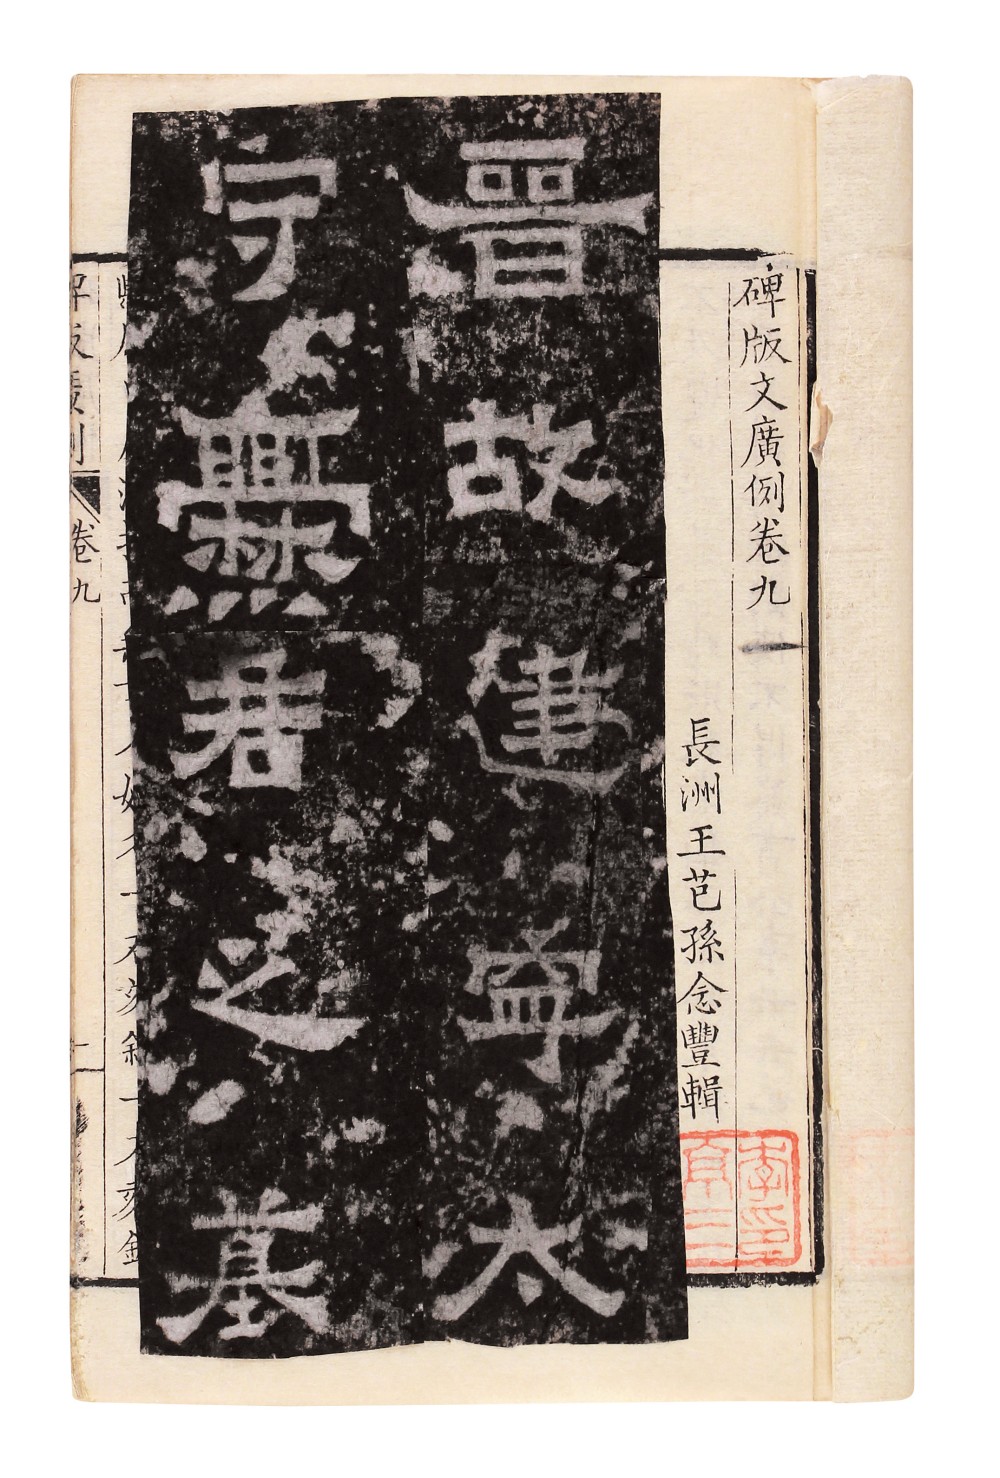 碑版文廣例卷九
長洲王芑孫念豐輯
晉故建寧太
守爨君之墓
碑版廣例
卷九
一